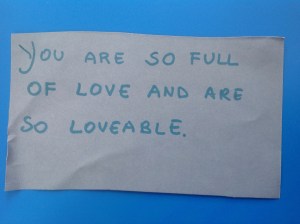 YOU ARE SO FULL
OF LOVE AND ARE
SO LOVEABLE.